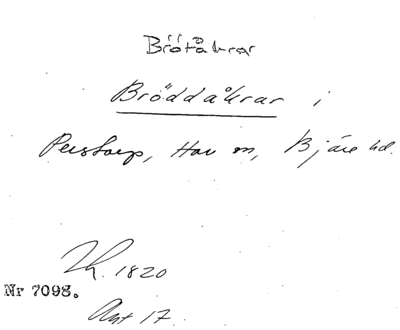 Brötåkrar
Bröddåkrar i
Perstorp, Hov sn, Bjäre hd.
Lh. 1820
Nr 7098.
Akt 17